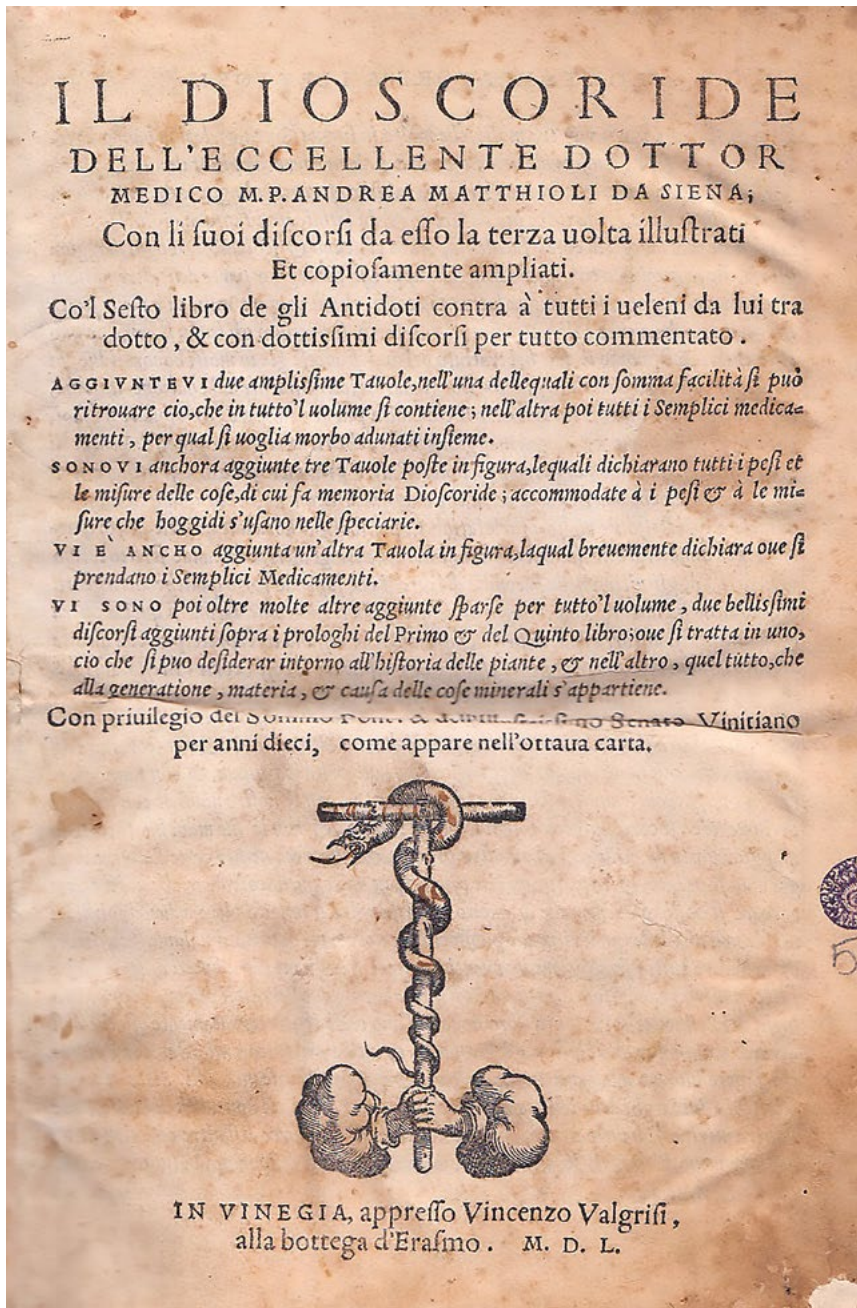 IL DIOSCORIDE
DELL'ECCELLENTE DOTTOR
MEDICO M.P. ANDREA MATTHIOLI DA SIENA;
Con li ſuoi diſcorſi da eſſo la terza uolta illuſtrati
Et copioſamente ampliati.
Co'l Seſto libro de gli Antidoti contra à tutti i ueleni da lui tra
dotto, & con dottiſſimi diſcorſi per tutto commentato.
AGGIVNTEVI due ampliſſime Tauole, nell'una dellequali con ſomma facilità ſi può
ritrouare cio, che in tutto'l uolume ſi contiene; nell'altra poi tutti i Semplici medica=
menti, per qual ſi uoglia morbo adunati inſieme.
SONOVI anchora aggiunte tre Tauole poſte in figura, lequali dichiarano tutti i peſi et
le miſure delle coſe, di cui fa memoria Dioſcoride; accommodate à i peſi & à le mi=
ſure che hoggidi s'uſano nelle ſpeciarie.
VI E` ANCHO aggiunta un'altra Tauola in figura, laqual breuemente dichiara oue ſi
prendano i Semplici Medicamenti.
VI SONO poi oltre molte altre aggiunte ſparſe per tutto'l uolume, due belliſſimi
diſcorſi aggiunti ſopra i prologhi del Primo & del Quinto libro; oue ſi tratta in uno,
cio che ſi puo deſiderar intorno all'hiſtoria delle piante, & nell'altro, quel tutto, che
alla generatione, materia, & cauſa delle coſe minerali s'appartiene.
Con priuilegio del Sommo & Senato Vinitiano
per anni dieci, come appare nell'ottaua carta.
IN VINEGIA, appreſſo Vincenzo Valgriſi,
alla bottega d'Eraſmo. M. D. L.
5